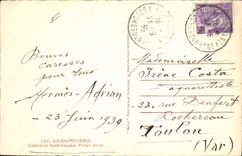 Bonnes
caresses
pour tous
Hermès-Adrian
23 Juin 1939
Mademoiselle
Irène Costa
aquarelliste
23, rue Denfert
Rochereau
Toulon
(Var)
AIX-EN-PROVENCE
Cathédrale Saint-Sauveur